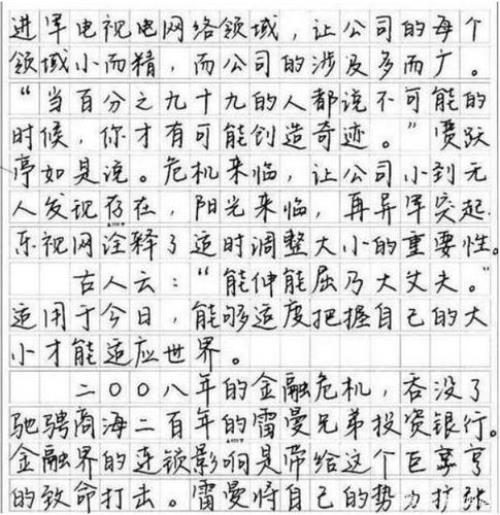 进军电视电网络领域，让公司的每个
领域小而精，而公司的涉及多而广。
“当百分之九十九的人都说不可能的
时候，你才有可能创造奇迹。”贾跃
亭如是说。危机来临，让公司小到无
人发现存在，阳光来临，再异军突起
乐视网诠释了适时调整大小的重要性。
古人云：“能伸能屈乃大丈夫。”
适用于今日，能够适度把握自己的大
小才能适应世界。
二〇〇八年的金融危机，吞没了
驰骋商海二百年的雷曼兄弟投资银行。
金融界的连锁影响是带给这个巨擘
的致命打击。雷曼将自己的势力扩张